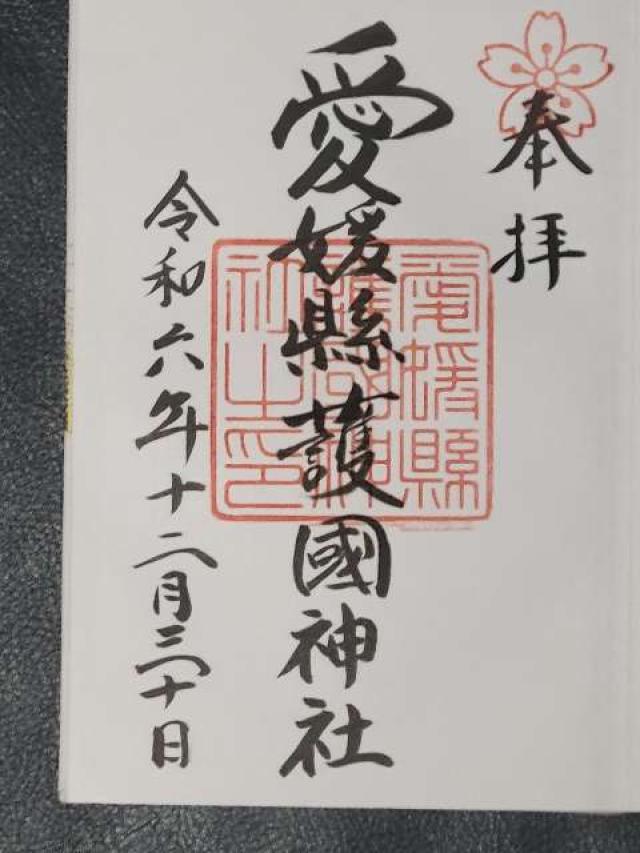 奉拝
愛媛縣護國神社
愛媛縣護國神社之印
令和六年十二月三十日